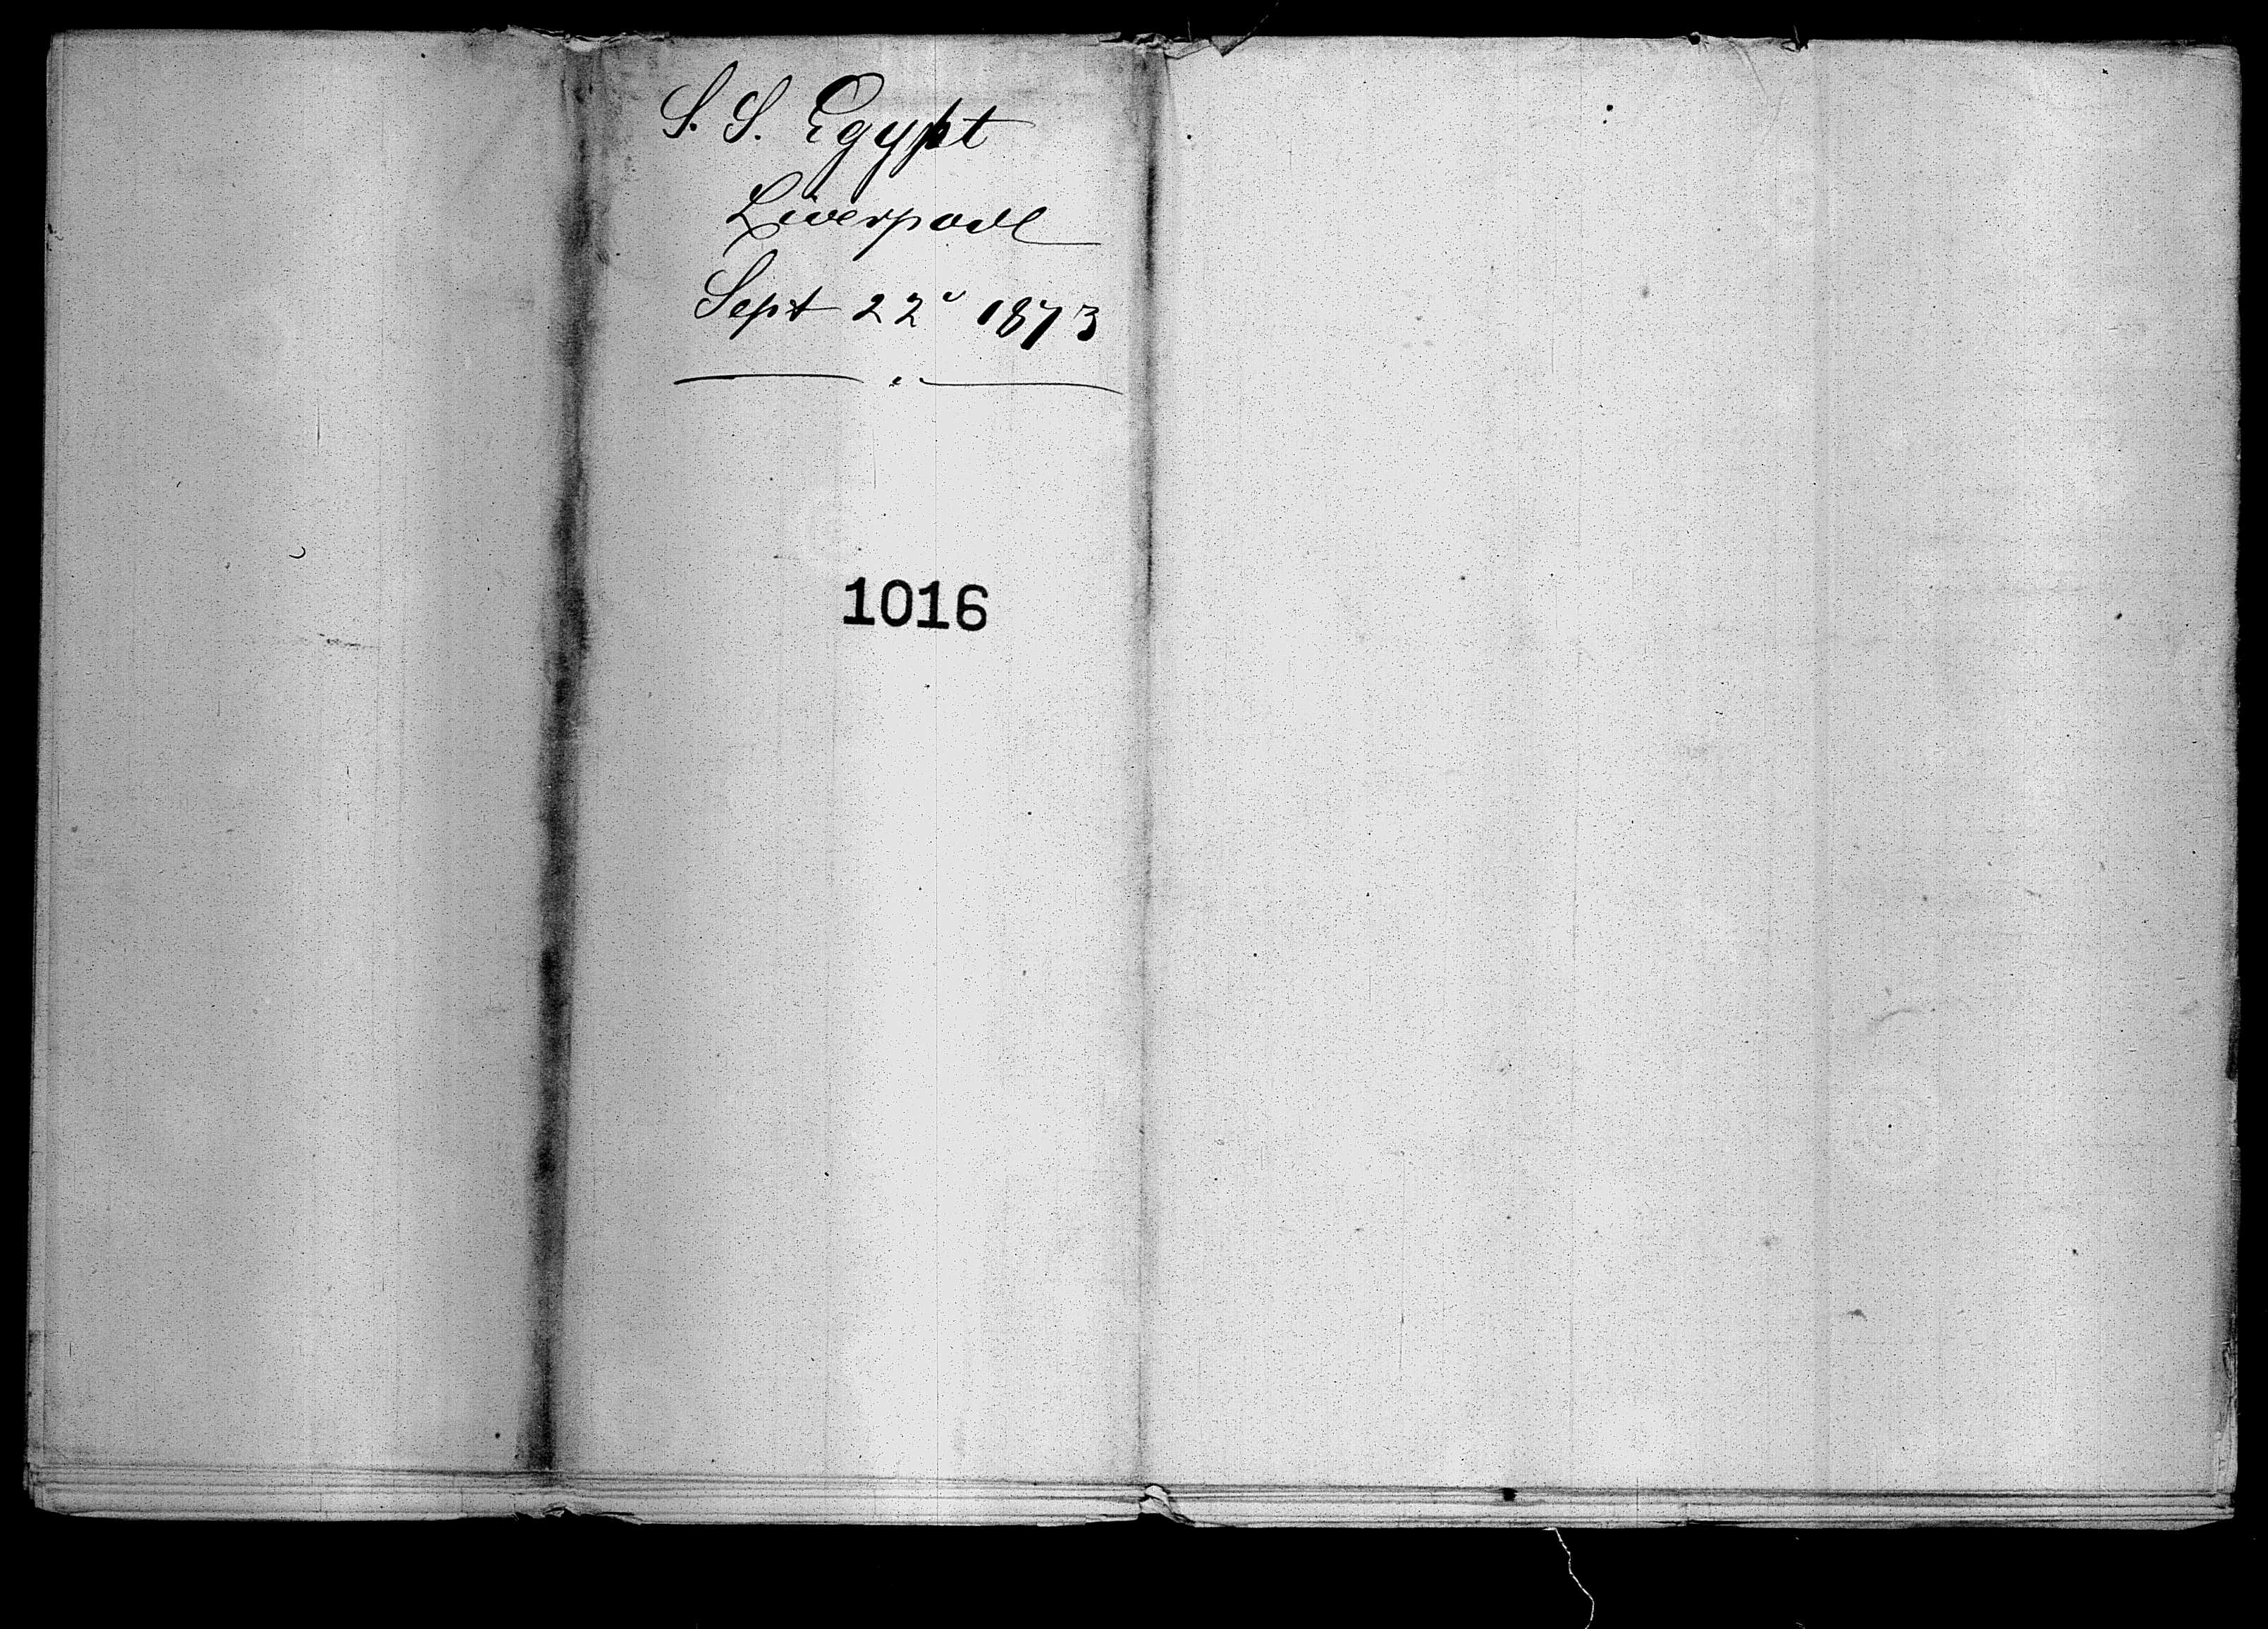 S. S. Egypt
Liverpool
Sept 22d 1873
1016